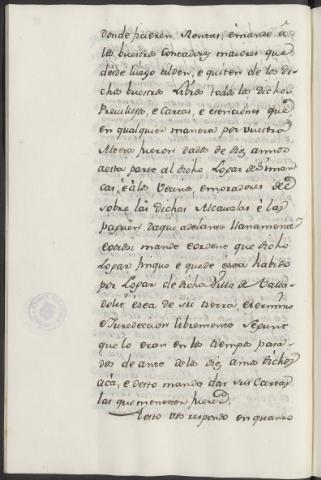 donde fueren, Rentas, é mando á
los buestros Contadores maiores que
desde luego tilden, e quiten de los di-
chos buestros Libros todos los dichos
Previllexos, e Cartas, e esenciones que
en qualquier manera por vuestra
Alteza fueron dadas de diez annos
a esta parte al dicho Logar de Siman
cas, é á los Vecinos, e moradores de
sobre las dichas Alcavalas é las
paguen daqui adelante llanamente
e otrosi mande e ordene que dicho
Logar finque e quede é sea habido
por Logar de dicha Villa de Valla-
dolit é sea de su tierra, e termino
e Juredecion libremente segunt
que lo eran en los tiempos pasa-
dos de ante de los diez annos dichos
acá, e desto mando dar sus Cartas
las que menester fueren.
A esto vos respondo en quanto